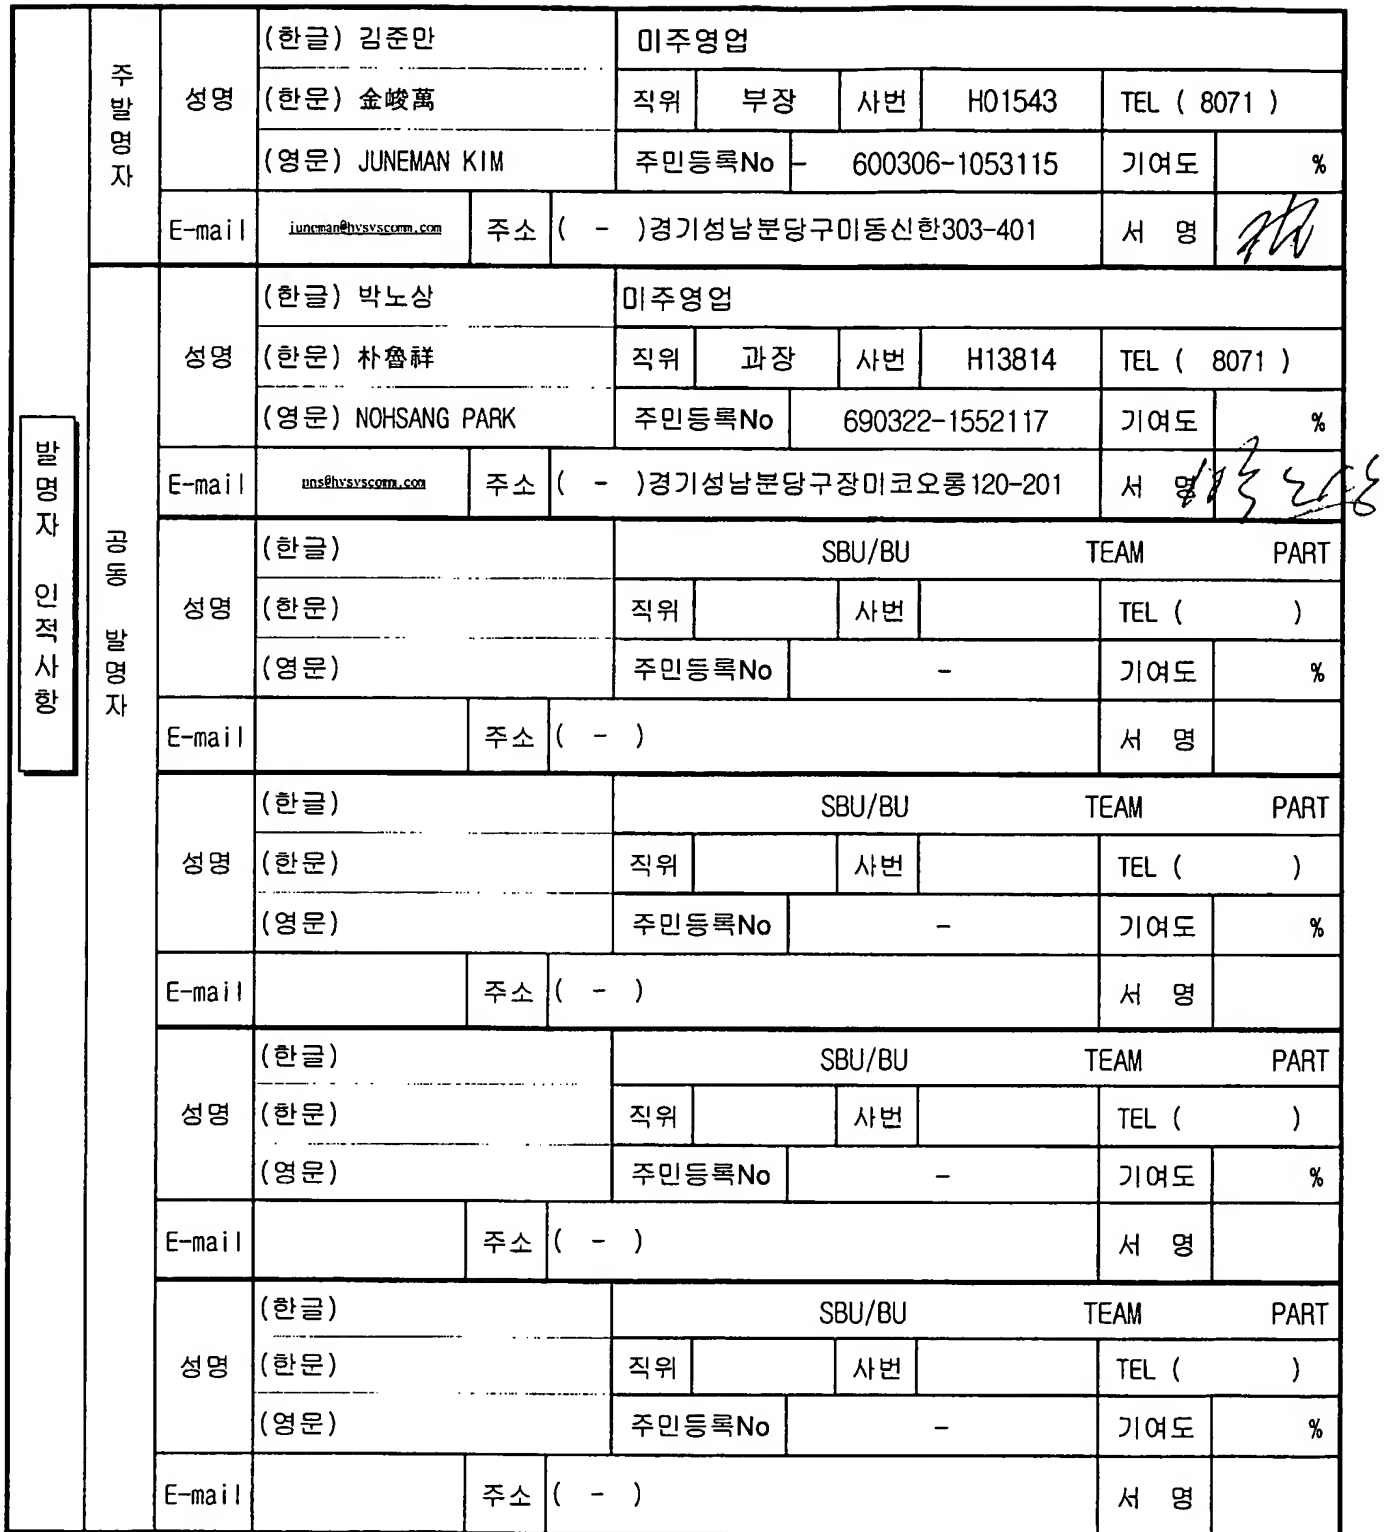 발명자 인적사항
주발명자
성명
(한글) 김준만
미주영업
(한문) 金峻萬
직위 부장 사번 H01543 TEL ( 8071 )
(영문) JUNEMAN KIM
주민등록No - 600306-1053115 기여도 %
E-mail juneman@hysyscomm.com 주소 ( - )경기성남분당구미동신한303-401 서 명
공동 발명자
성명
(한글) 박노상
미주영업
(한문) 朴魯祥
직위 과장 사번 H13814 TEL ( 8071 )
(영문) NOHSANG PARK
주민등록No 690322-1552117 기여도 %
E-mail pns@hysyscomm.com 주소 ( - )경기성남분당구장미코오롱120-201 서 명 박노상
성명
(한글)
SBU/BU TEAM PART
(한문)
직위 사번 TEL ( )
(영문)
주민등록No - 기여도 %
E-mail 주소 ( - ) 서 명
성명
(한글)
SBU/BU TEAM PART
(한문)
직위 사번 TEL ( )
(영문)
주민등록No - 기여도 %
E-mail 주소 ( - ) 서 명
성명
(한글)
SBU/BU TEAM PART
(한문)
직위 사번 TEL ( )
(영문)
주민등록No - 기여도 %
E-mail 주소 ( - ) 서 명
성명
(한글)
SBU/BU TEAM PART
(한문)
직위 사번 TEL ( )
(영문)
주민등록No - 기여도 %
E-mail 주소 ( - ) 서 명